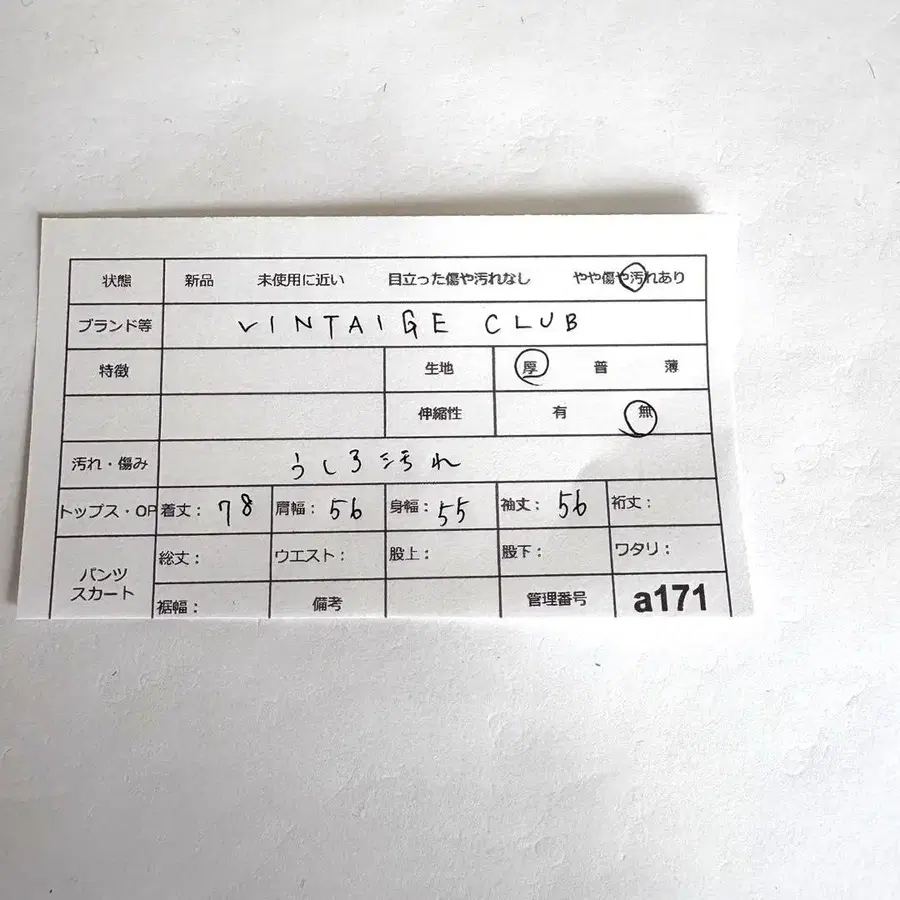 状態 新品 未使用に近い 目立った傷や汚れなし やや傷や汚れあり
ブランド等 VINTAIGE CLUB
特徴 生地 厚 普 薄
伸縮性 有 無
汚れ・傷み うしろ汚れ
トップス・OP 着丈: 78 肩幅: 56 身幅: 55 袖丈: 56 裄丈:
パンツ スカート 総丈: ウエスト: 股上: 股下: ワタリ:
裾幅: 備考 管理番号 a171